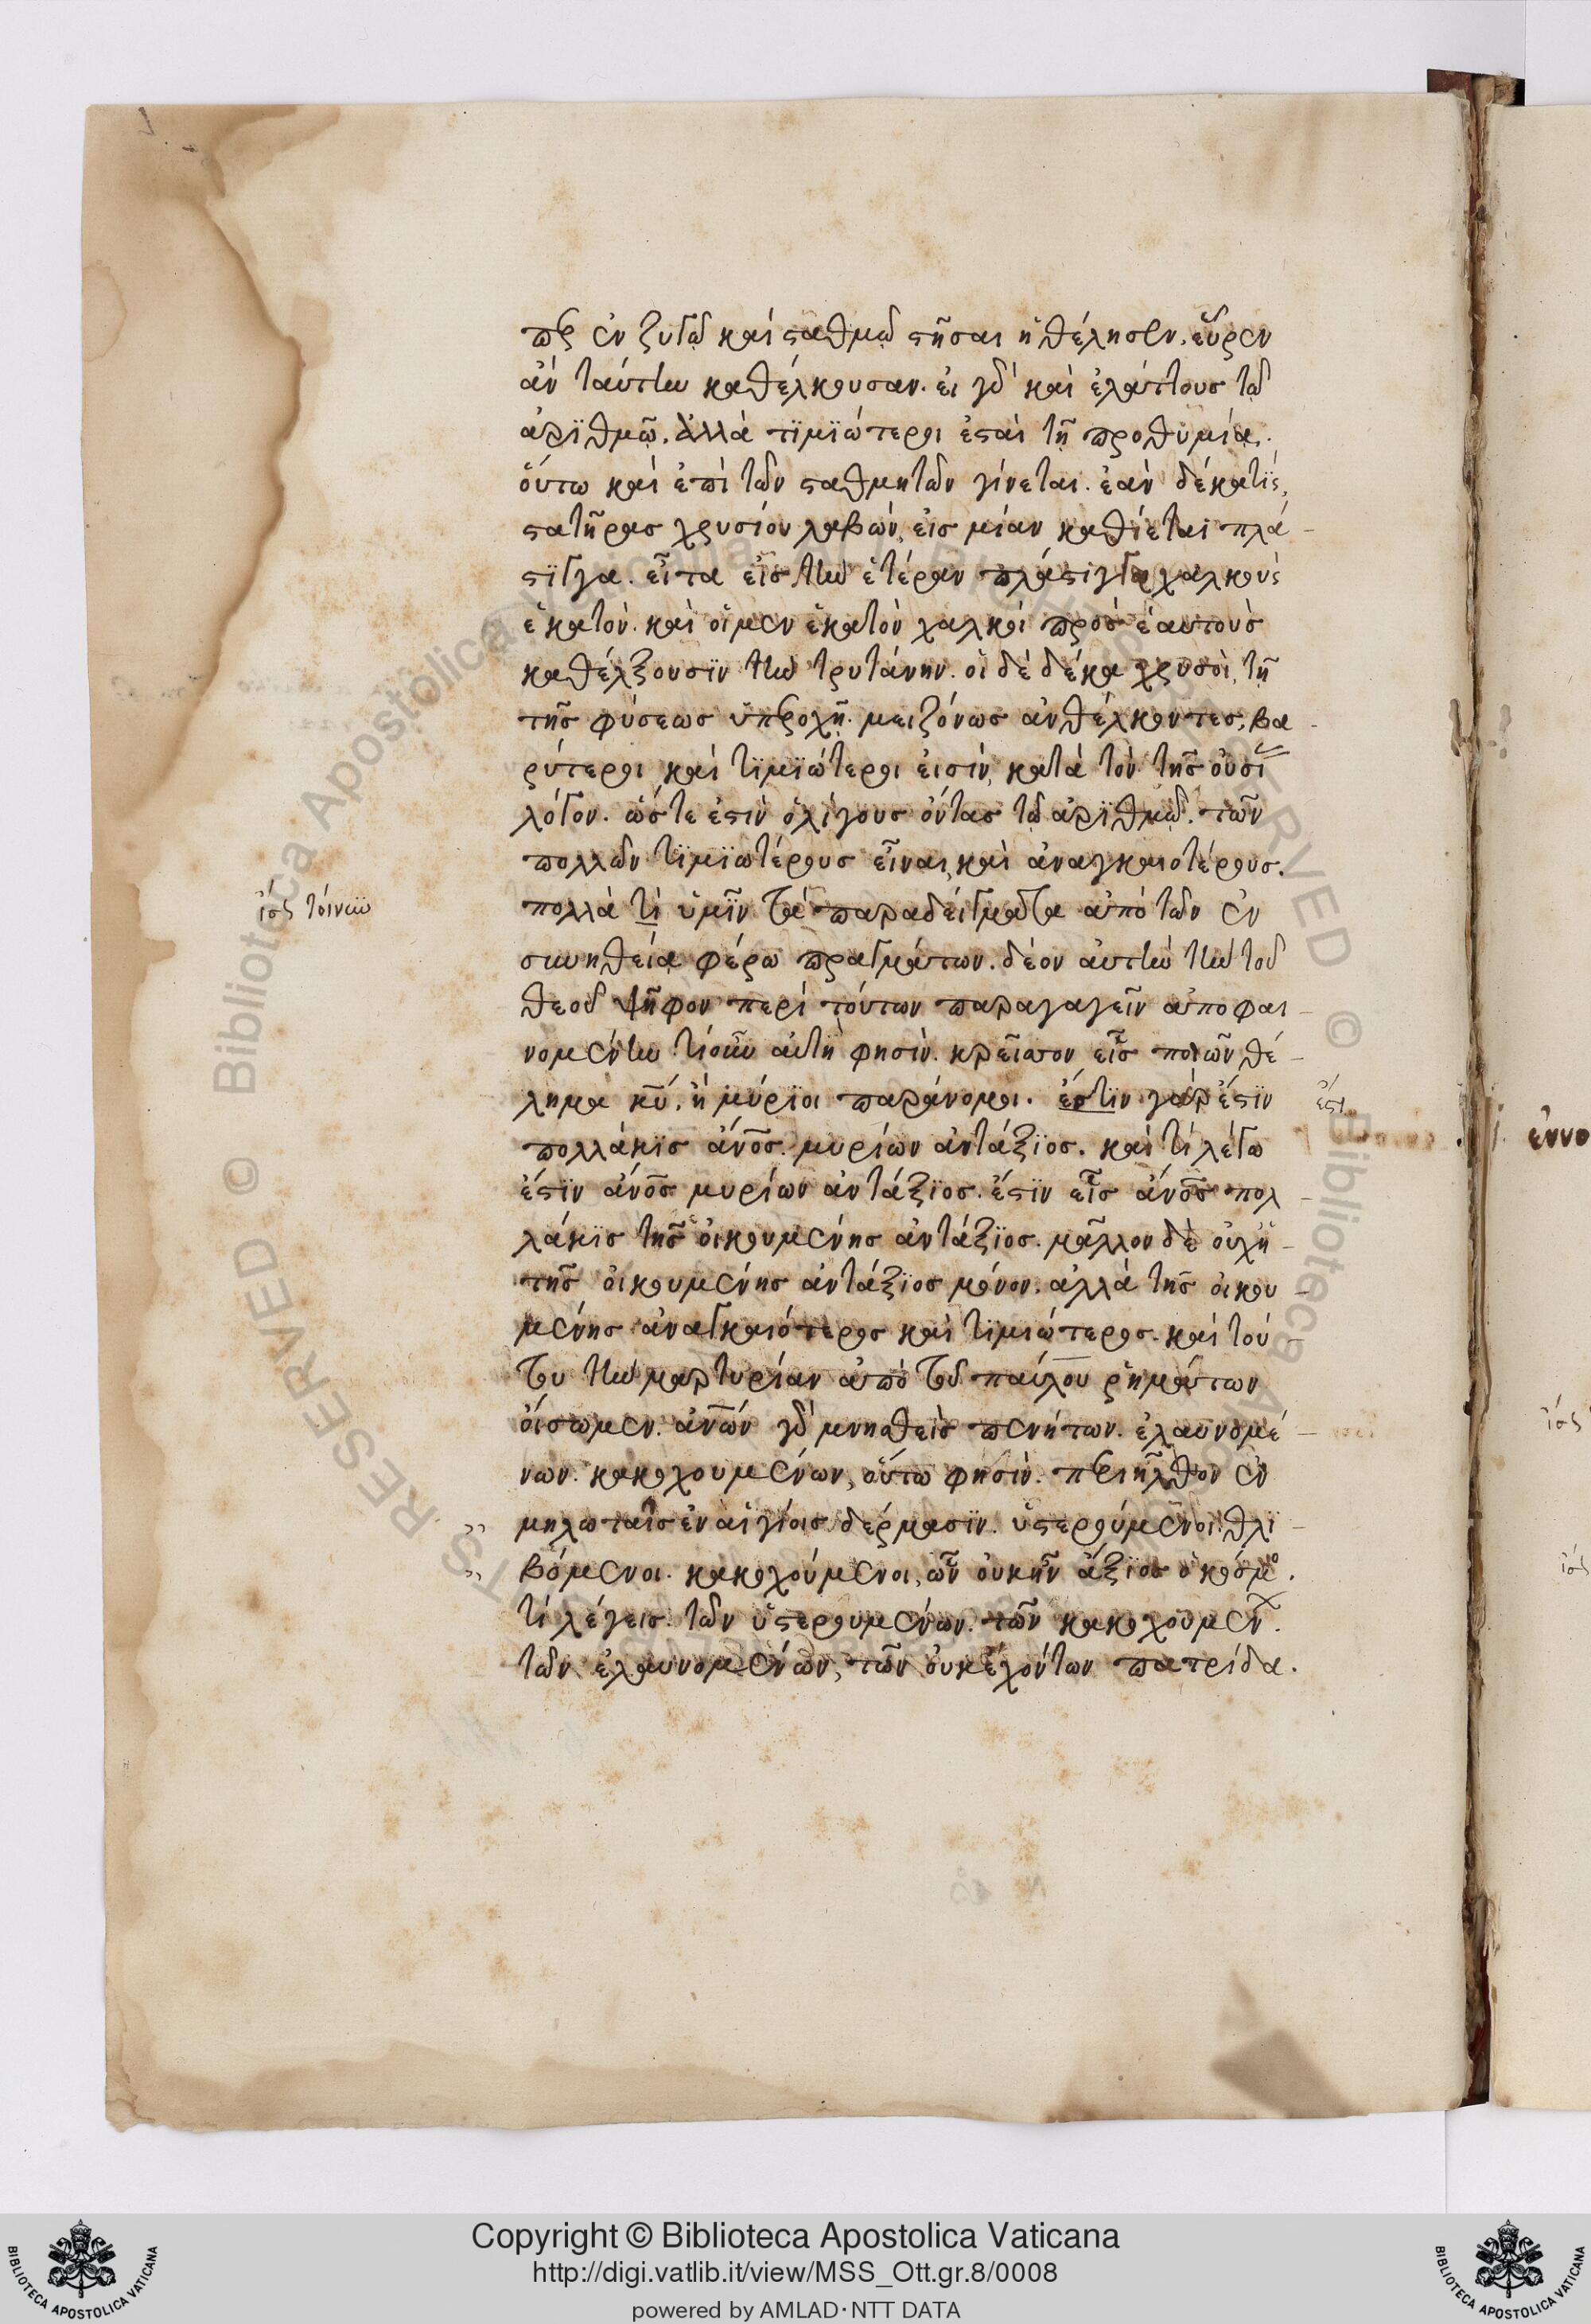 περ ἐν ζυγῷ καὶ σταθμῷ στῆσαι ἠθέλησεν, εὗρεν
ἂν ταύτην καθέλκουσαν. εἰ γὰρ καὶ ἐλάττους τῷ
ἀρϊθμῷ. ἀλλὰ τϊμϊώτεροι ἐσταὶ τῇ προθυμίᾳ.
οὕτω καὶ ἐπὶ τῶν σταθμητῶν γίνεται. ἐὰν δέκα τὶς,
στατῆρας χρυσίον λαβὼν, εἰς μίαν καθίεται πλά-
στϊγγα. εἶτα εἰς τὴν ἑτέραν πλάστιγγα χαλκοὺς
ἑκατὸν. καὶ οἱ μὲν ἑκατὸν χαλκοὶ πρὸς ἑαυτοὺς
καθέλξουσϊν τὴν τρυτάνην. οἱ δὲ δέκα χρυσοὶ, τῇ
τῆς φύσεως ὑπεροχῇ. μειζόνως ἀνθέλκοντες, βα-
ρύτεροι καὶ τϊμϊώτεροι εἰσὶν, κατὰ τὸν τῆς οὐσί
λόγον. ὥστε ἐστὶν ὀλίγους ὄντας τῷ ἀρϊθμῷ. τῶν
πολλῶν τϊμϊωτέρους εἶναι, καὶ ἀναγκαιοτέρους.
ἴσ τοίνυν
πολλὰ τί ὑμῖν τὰ παραδείγματα ἀπὸ τῶν ἐν
συνηθείᾳ φέρω πραγμάτων. δέον αὐτὴν τὴν τοῦ
θεοῦ ψῆφον περὶ τούτων παραγαγεῖν ἀποφαι-
νομένην τί οὖν αὐτὴ φησὶν. κρεῖσσον εἷς ποιῶν θέ-
λημα κ̅υ̅. ἢ μύρϊοι παράνομοι. ἔστϊν γὰρ ἔστϊν
ἔστι
πολλάκϊς ἄν̅ο̅ς̅ μυρίων ἀντάξϊος. καὶ τί λέγω
ἔστϊν ἄν̅ο̅ς̅ μυρίων ἀντάξϊος. ἔστϊν εἷς ἄν̅ο̅ς̅ πολ-
λάκϊς τῆς οἰκουμένης ἀντάξϊος. μᾶλλον δὲ οὐχὶ-
τῆς οἰκουμένης ἀντάξϊος μόνον. ἀλλὰ τῆς οἰκου-
μένης ἀναγκαιότερος καὶ τϊμιώτερος. καὶ τού-
του τὴν μαρτυρίαν ἀπὸ τῶν παύλου ῥημάτων
οἴσωμεν. ἀν̅ω̅ν̅ γὰρ μνησθεὶς πενήτων. ἐλαυνομέ-
νων. κακοχουμένων, οὕτω φησὶν. περιῆλθον ἐν
μηλωταῖς ἐν αἰγίοις δέρμασϊν. ὑστερούμενοι. θλϊ-
βόμενοι. κακοχούμενοι, ὧν οὐκ ἦν ἄξϊος ὁ κόσμο.
τί λέγεις. τῶν ὑστερουμένων. τῶν κακοχουμέν.
τῶν ἐλαυνομένων, τῶν οὐκ ἐχόντων πατρίδα.
ἐννο
Copyright © Biblioteca Apostolica Vaticana
http://digi.vatlib.it/view/MSS_Ott.gr.8/0008
powered by AMLAD·NTT DATA